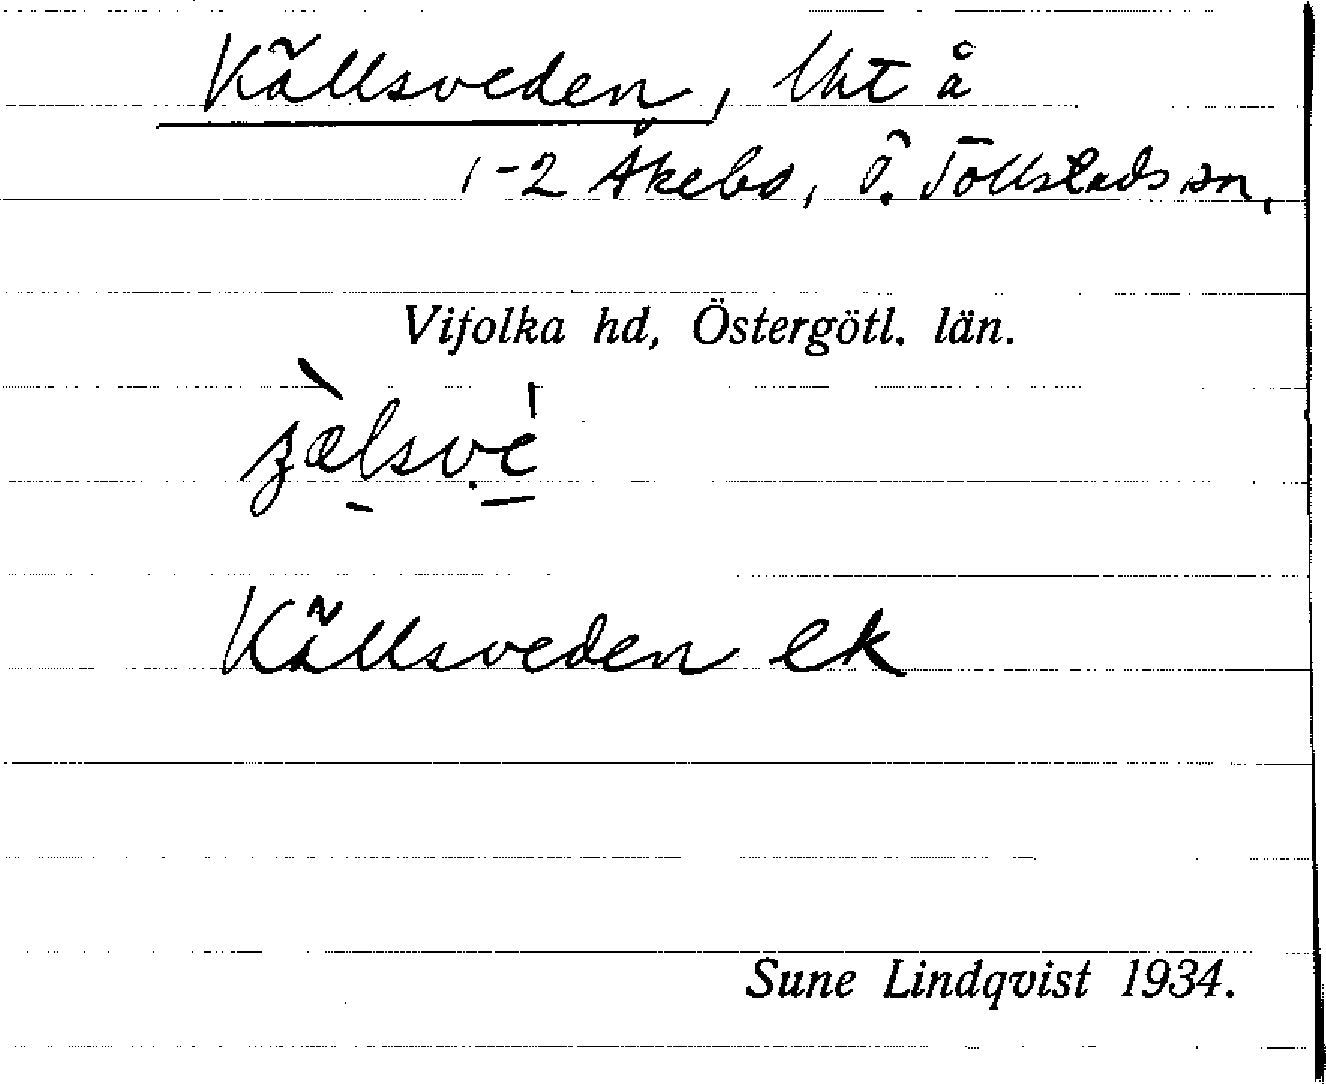 Källsveden, Uht å
1-2 Åkebo, Ö. Tollstads sn,
Vifolka hd, Östergötl. län.
Källsveden ek
Sune Lindqvist 1934.